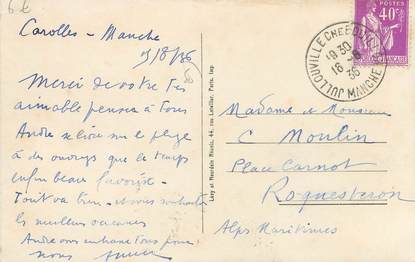 6 €
Carolles - Manche
15/8/36
Merci de votre très
aimable pensée à tous
André se livre sur la plage
à des ouvrages que le temps
enfin beau favorise -
Tout va bien -
les meilleures vacances
André vous embrasse tous pour
nous
Lévy et Neurdein Réunis, 44, rue Letellier, Paris, Imp.
POSTES
40c
JULLOUVILLE
MANCHE
19 30
16 -8
36
Madame et Monsieur
C Moulin
Place Carnot
Roquesteron
Alpes Maritimes